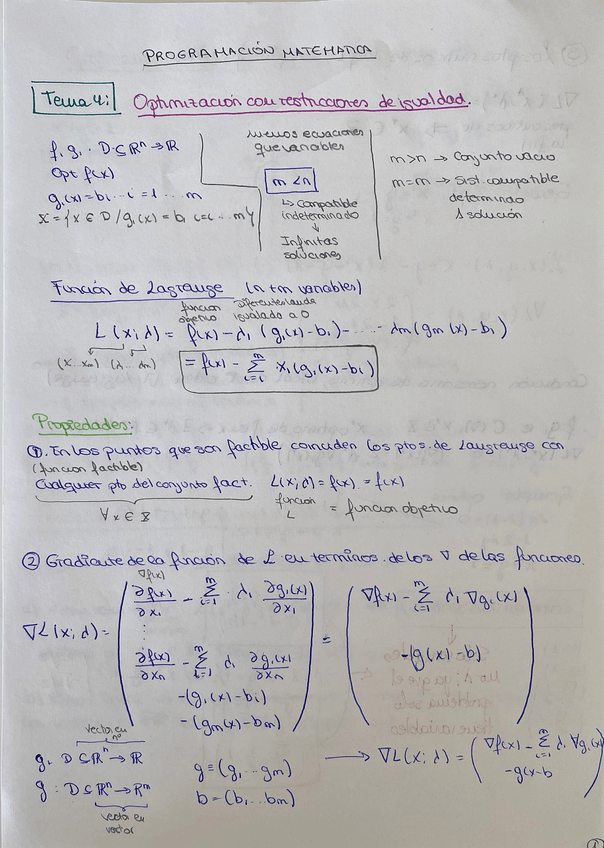 PROGRAMACIÓN MATEMATICA
Tema 4: Optimización con restricciones de igualdad.
f, gi : D ⊆ ℝⁿ → ℝ
Opt f(x)
gi(x) = bi i = 1 ... m
X = {x ∈ D / gi(x) = bi i = i ... m}
menos ecuaciones
que variables
m < n
↳ Compatible
indeterminado
↓
Infinitas
soluciones
m > n → Conjunto vacio
m = m → Sist. compatible
determinado
1 solución
Función de Lagrange (n + m variables)
funcion
objetivo
igualada a 0
L(x; λ) = f(x) - λ1 (g1(x) - b1) - ..... λm (gm(x) - b1)
(x... xm) (λ... λm)
= f(x) - Σ(i=1, m) · λ1 (gi(x) - bi)
Propiedades:
① En los puntos que son factible coinciden los ptos. de Laugrange con
(funcion factible)
cualquier pto del conjunto fact. L(x; λ) = f(x) = f(x)
∀ x ∈ X
función
L
= funcion objetivo
② Gradiente de la función de L en terminos de los ∇ de las funciones.
∇f(x)
∂f(x)/∂x1 - Σ(i=1, m) · λi ∂gi(x)/∂x1
⋮
∇L(x; λ) =
∂f(x)/∂xn - Σ(i=1, m) λi ∂gi(x)/∂xn
-(gi(x) - bi)
-(gm(x) - bm)
=
∇f(x) - Σ(i=1, m) λi ∇gi(x)
-(g(x) - b)
vector en
nº
gi D ⊆ ℝⁿ → ℝ
g : D ⊆ ℝⁿ → ℝᵐ
vector en
vector
g = (g1 ... gm)
b = (b1 ... bm)
→ ∇L(x; λ) = (∇f(x) - Σ(i=1, m) λi ∇gi(x)
-g(x - b